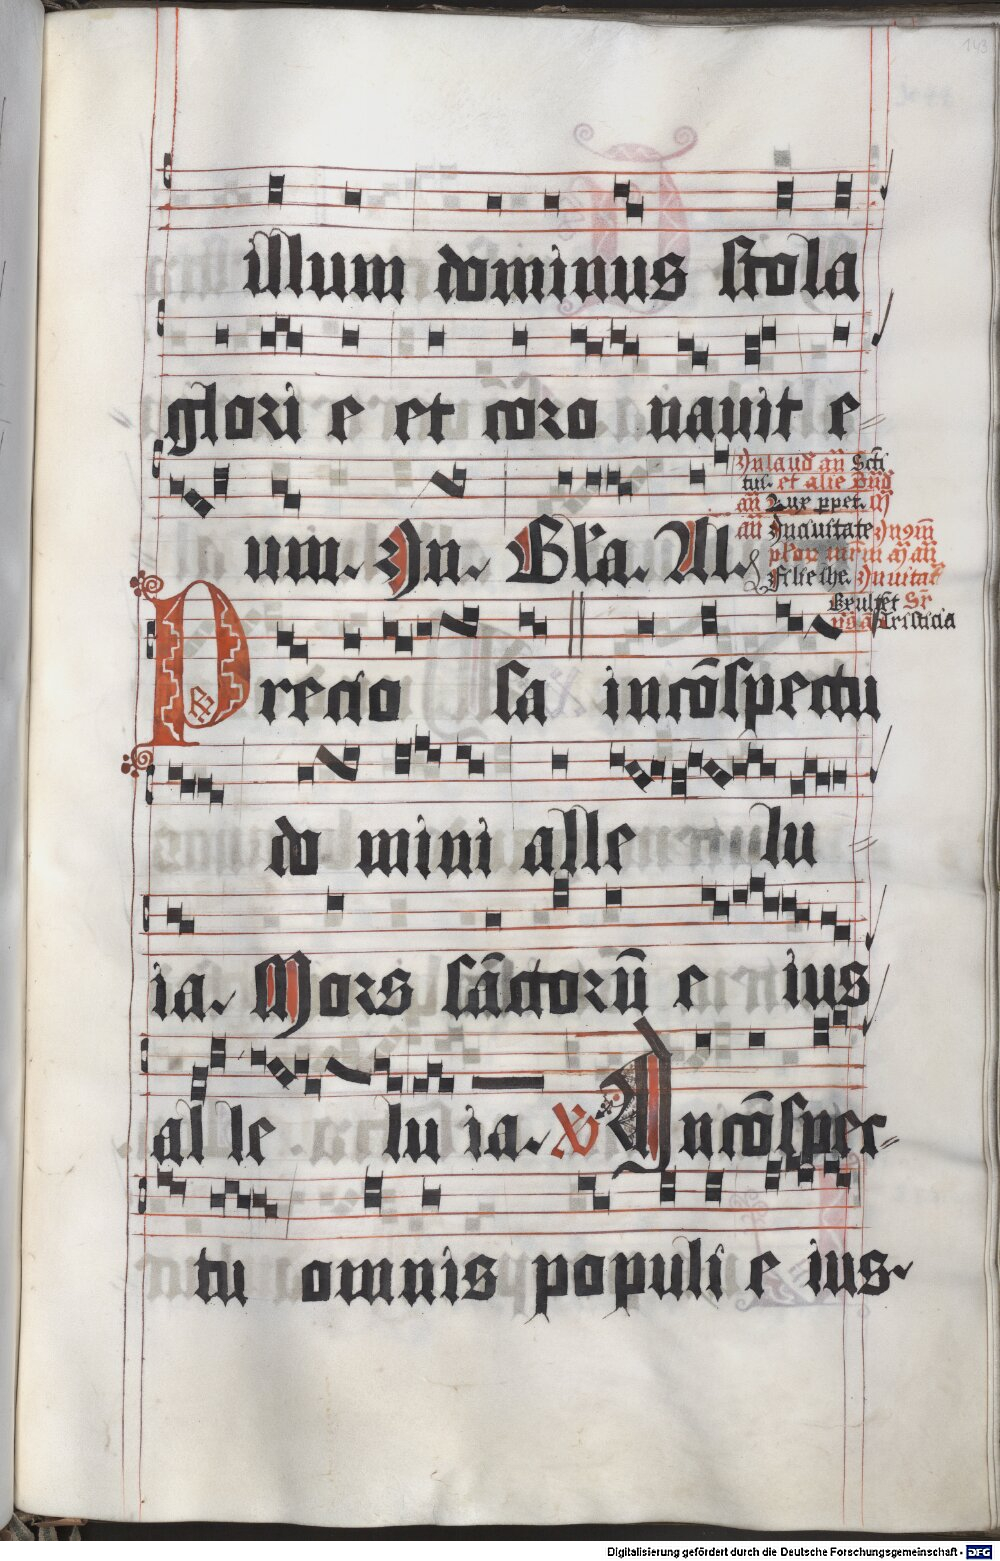 143
illum dominus stola
glori e et coro nauit e
um. Jn. Bl'a. Al.
Jn laud an̄ Scti
tus. et alie
an̄ Lux ppet.
an̄ Jnciuitate
Filie ihe. Jnuitat
Exultet
Tristicia
Precio sa incōspectu
do mini alle lu
ia. Mors sāctorū e ius
alle lu ia. V Jncōspec-
tu omnis populi e ius.
Digitalisierung gefördert durch die Deutsche Forschungsgemeinschaft - DFG